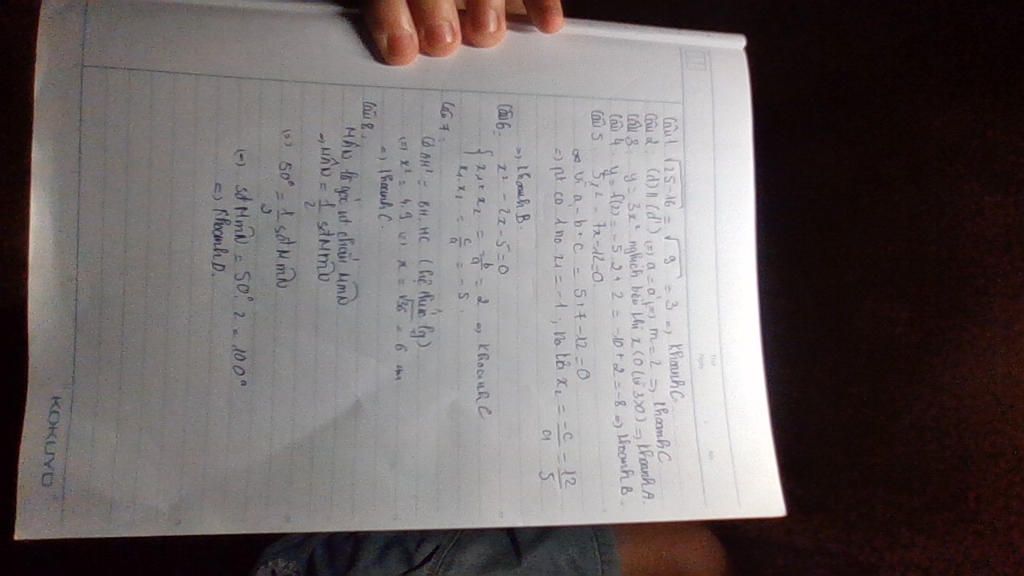 Câu 1. √25-16 = √9 = 3 => khoanh C.
Câu 2. (d) // (d') (=) a = a' (=) m = 2 => khoanh C
Câu 3. y = 3x² nghịch biến khi x < 0 (vì 3>0) => khoanh A.
Câu 4. y = f(2) = -5.2 + 2 = -10 + 2 = -8 => khoanh B.
Câu 5. 5x² - 7x - 12 = 0
vì a - b + c = 5 + 7 - 12 = 0
=> pt có 1 no x₁ = -1, no là x₂ = -c/a = 12/5
=> khoanh B.
Câu 6. x² - 2x - 5 = 0
{ x₁ + x₂ = -b/a = 2 => khoanh C
x₁ . x₂ = c/a = -5.
Câu 7.
Có AH² = BH.HC (hệ thức lg)
(=) x² = 4.9 (=) x = √36 = 6 cm
=> khoanh C.
Câu 8.
MÂN là góc nt chắn MmN
=> MÂN = 1/2 sđ MmN
(=) 50° = 1/2 sđ MmN
(=) sđ MmN = 50°. 2 = 100°
=> khoanh D.
KOKUYO